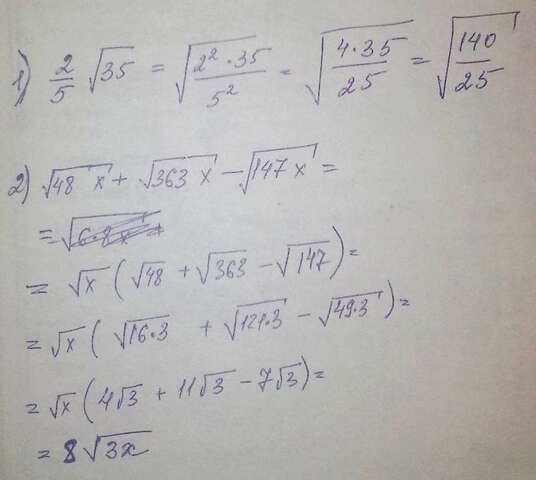 1) 2/5 √35 = √(2² · 35 / 5²) = √(4 · 35 / 25) = √(140 / 25)
2) √48 x + √363 x − √147 x =
= √6·8x
= √x (√48 + √363 − √147) =
= √x (√16·3 + √121·3 − √49·3) =
= √x (4√3 + 11√3 − 7√3) =
= 8√3x